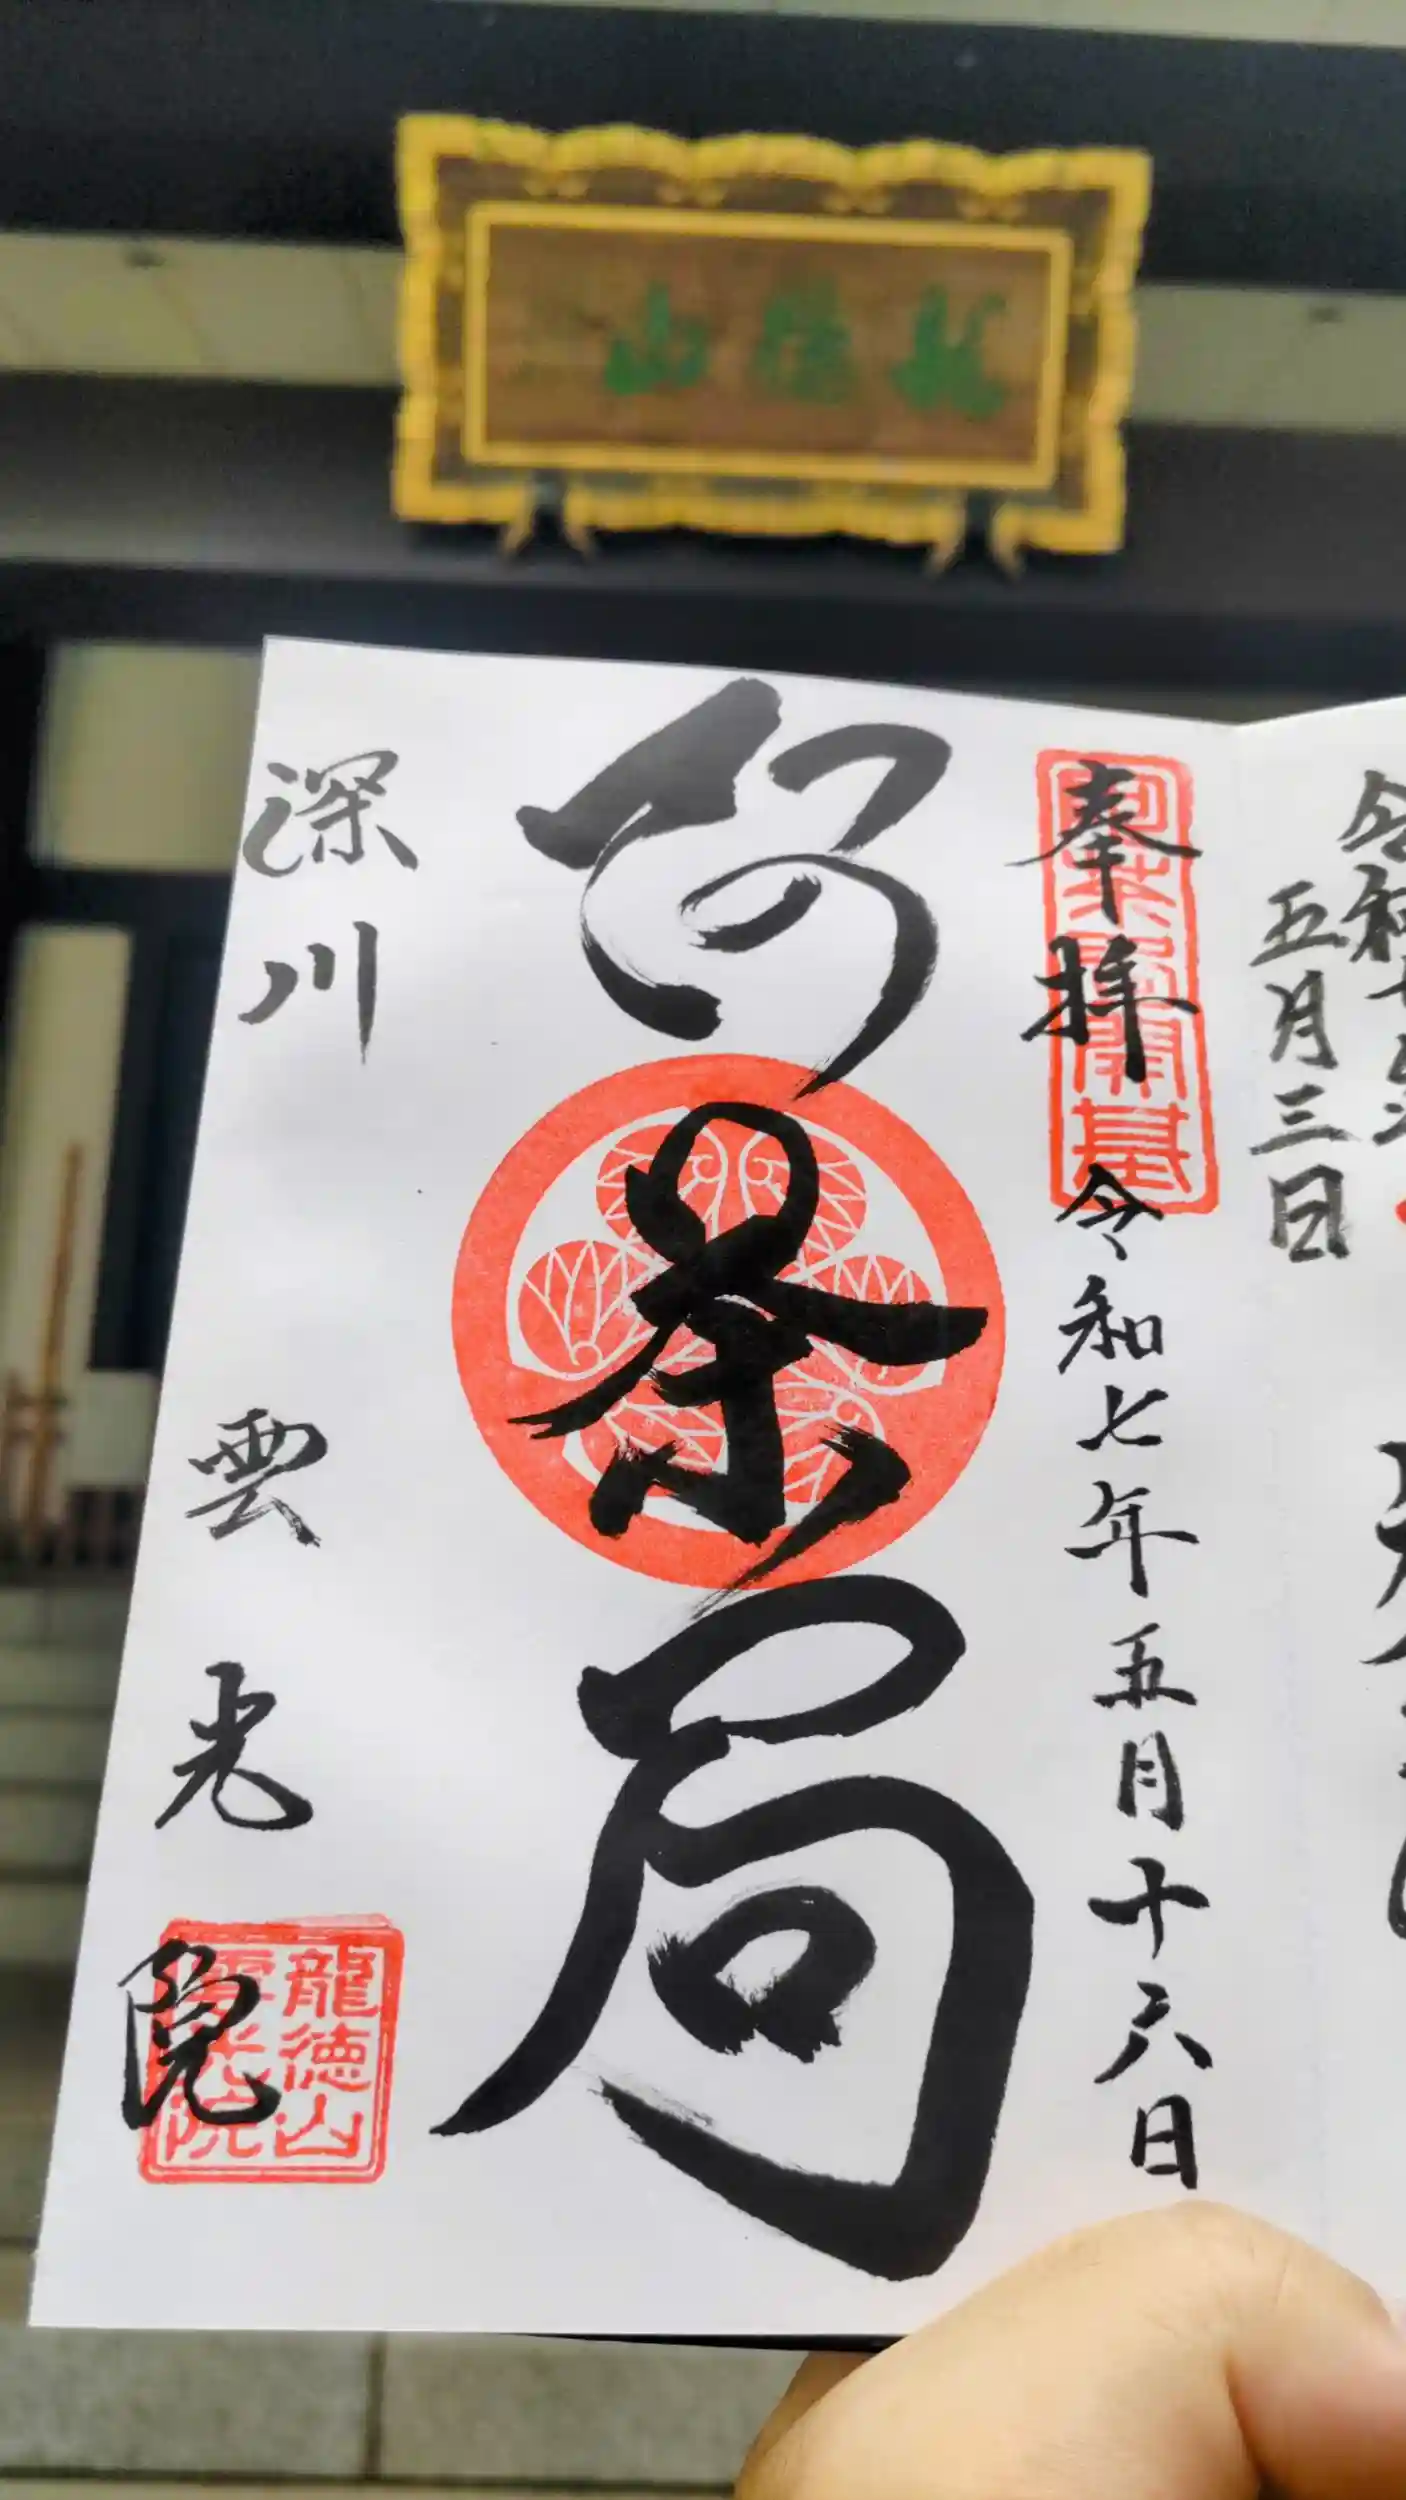 龍徳山
五月三日
奉拝 令和七年五月十六日
阿茶局開基
阿茶局
深川 雲光院
龍徳山
雲光院